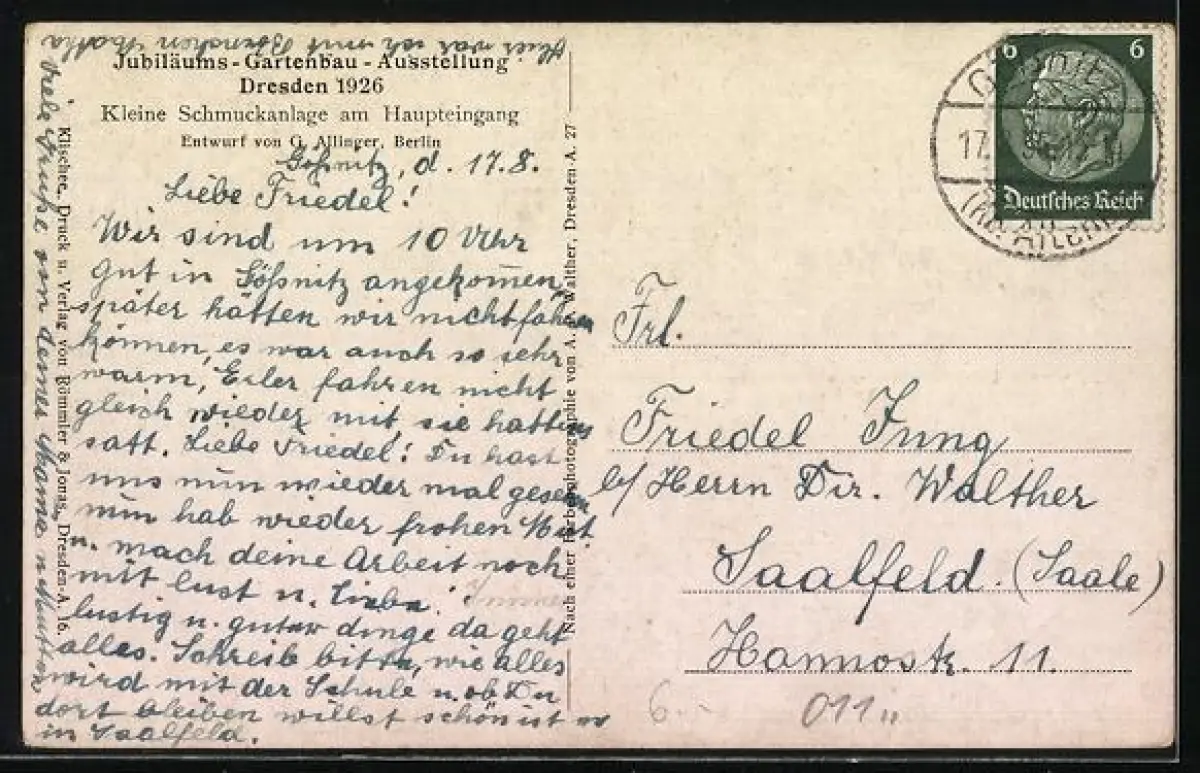 Jubiläums-Gartenbau-Ausstellung
Dresden 1926
Kleine Schmuckanlage am Haupteingang
Entwurf von G. Allinger, Berlin
Gößnitz, d. 17.8.
Liebe Friedel!
Wir sind um 10 Uhr
gut in Gößnitz angekommen,
später hätten wir nicht fahren
können, es war auch so sehr
warm, Erler fahren nicht
gleich wieder mit, sie hatten
satt. Liebe Friedel! Du hast
uns nun wieder mal gesehn
nun hab wieder frohen Mut
u. mach deine Arbeit noch
mit lust u. Liebe! Immer
lustig u. guter dinge da geht
alles. Schreib bitte, wie alles
wird mit der Schule u. ob Du
dort bleiben willst schön ist
in Saalfeld.
Viele Grüße von deiner Mama
ich mit
Klischee, Druck u. Verlag von Römmler & Jonas, Dresden-A. 16.
Nach einer Farbenphotographie von A. Walther, Dresden-A. 27
6 6
Deutsches Reich
17.
Frl.
Friedel Jung
b/ Herrn Dir. Walther
Saalfeld. (Saale)
Hannostr. 11.
6.-
011